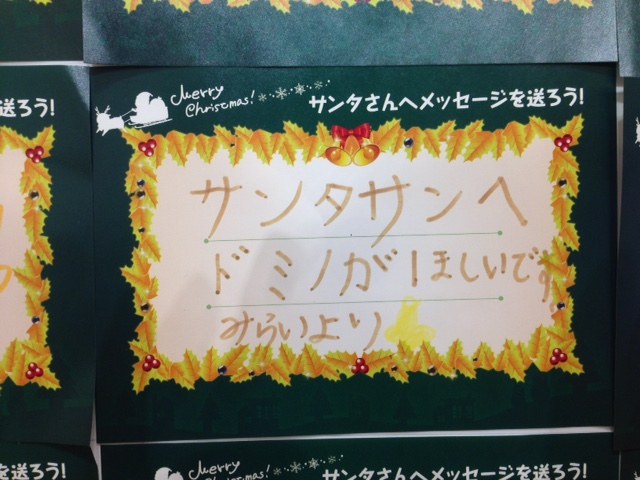 送ろう!
Merry
Christmas!
サンタさんへメッセージを送ろう!
サンタサンへ
ドミノがほしいです
みらいより
送ろう!
Merry
Christmas!
サンタさんへメッセージを送ろう!